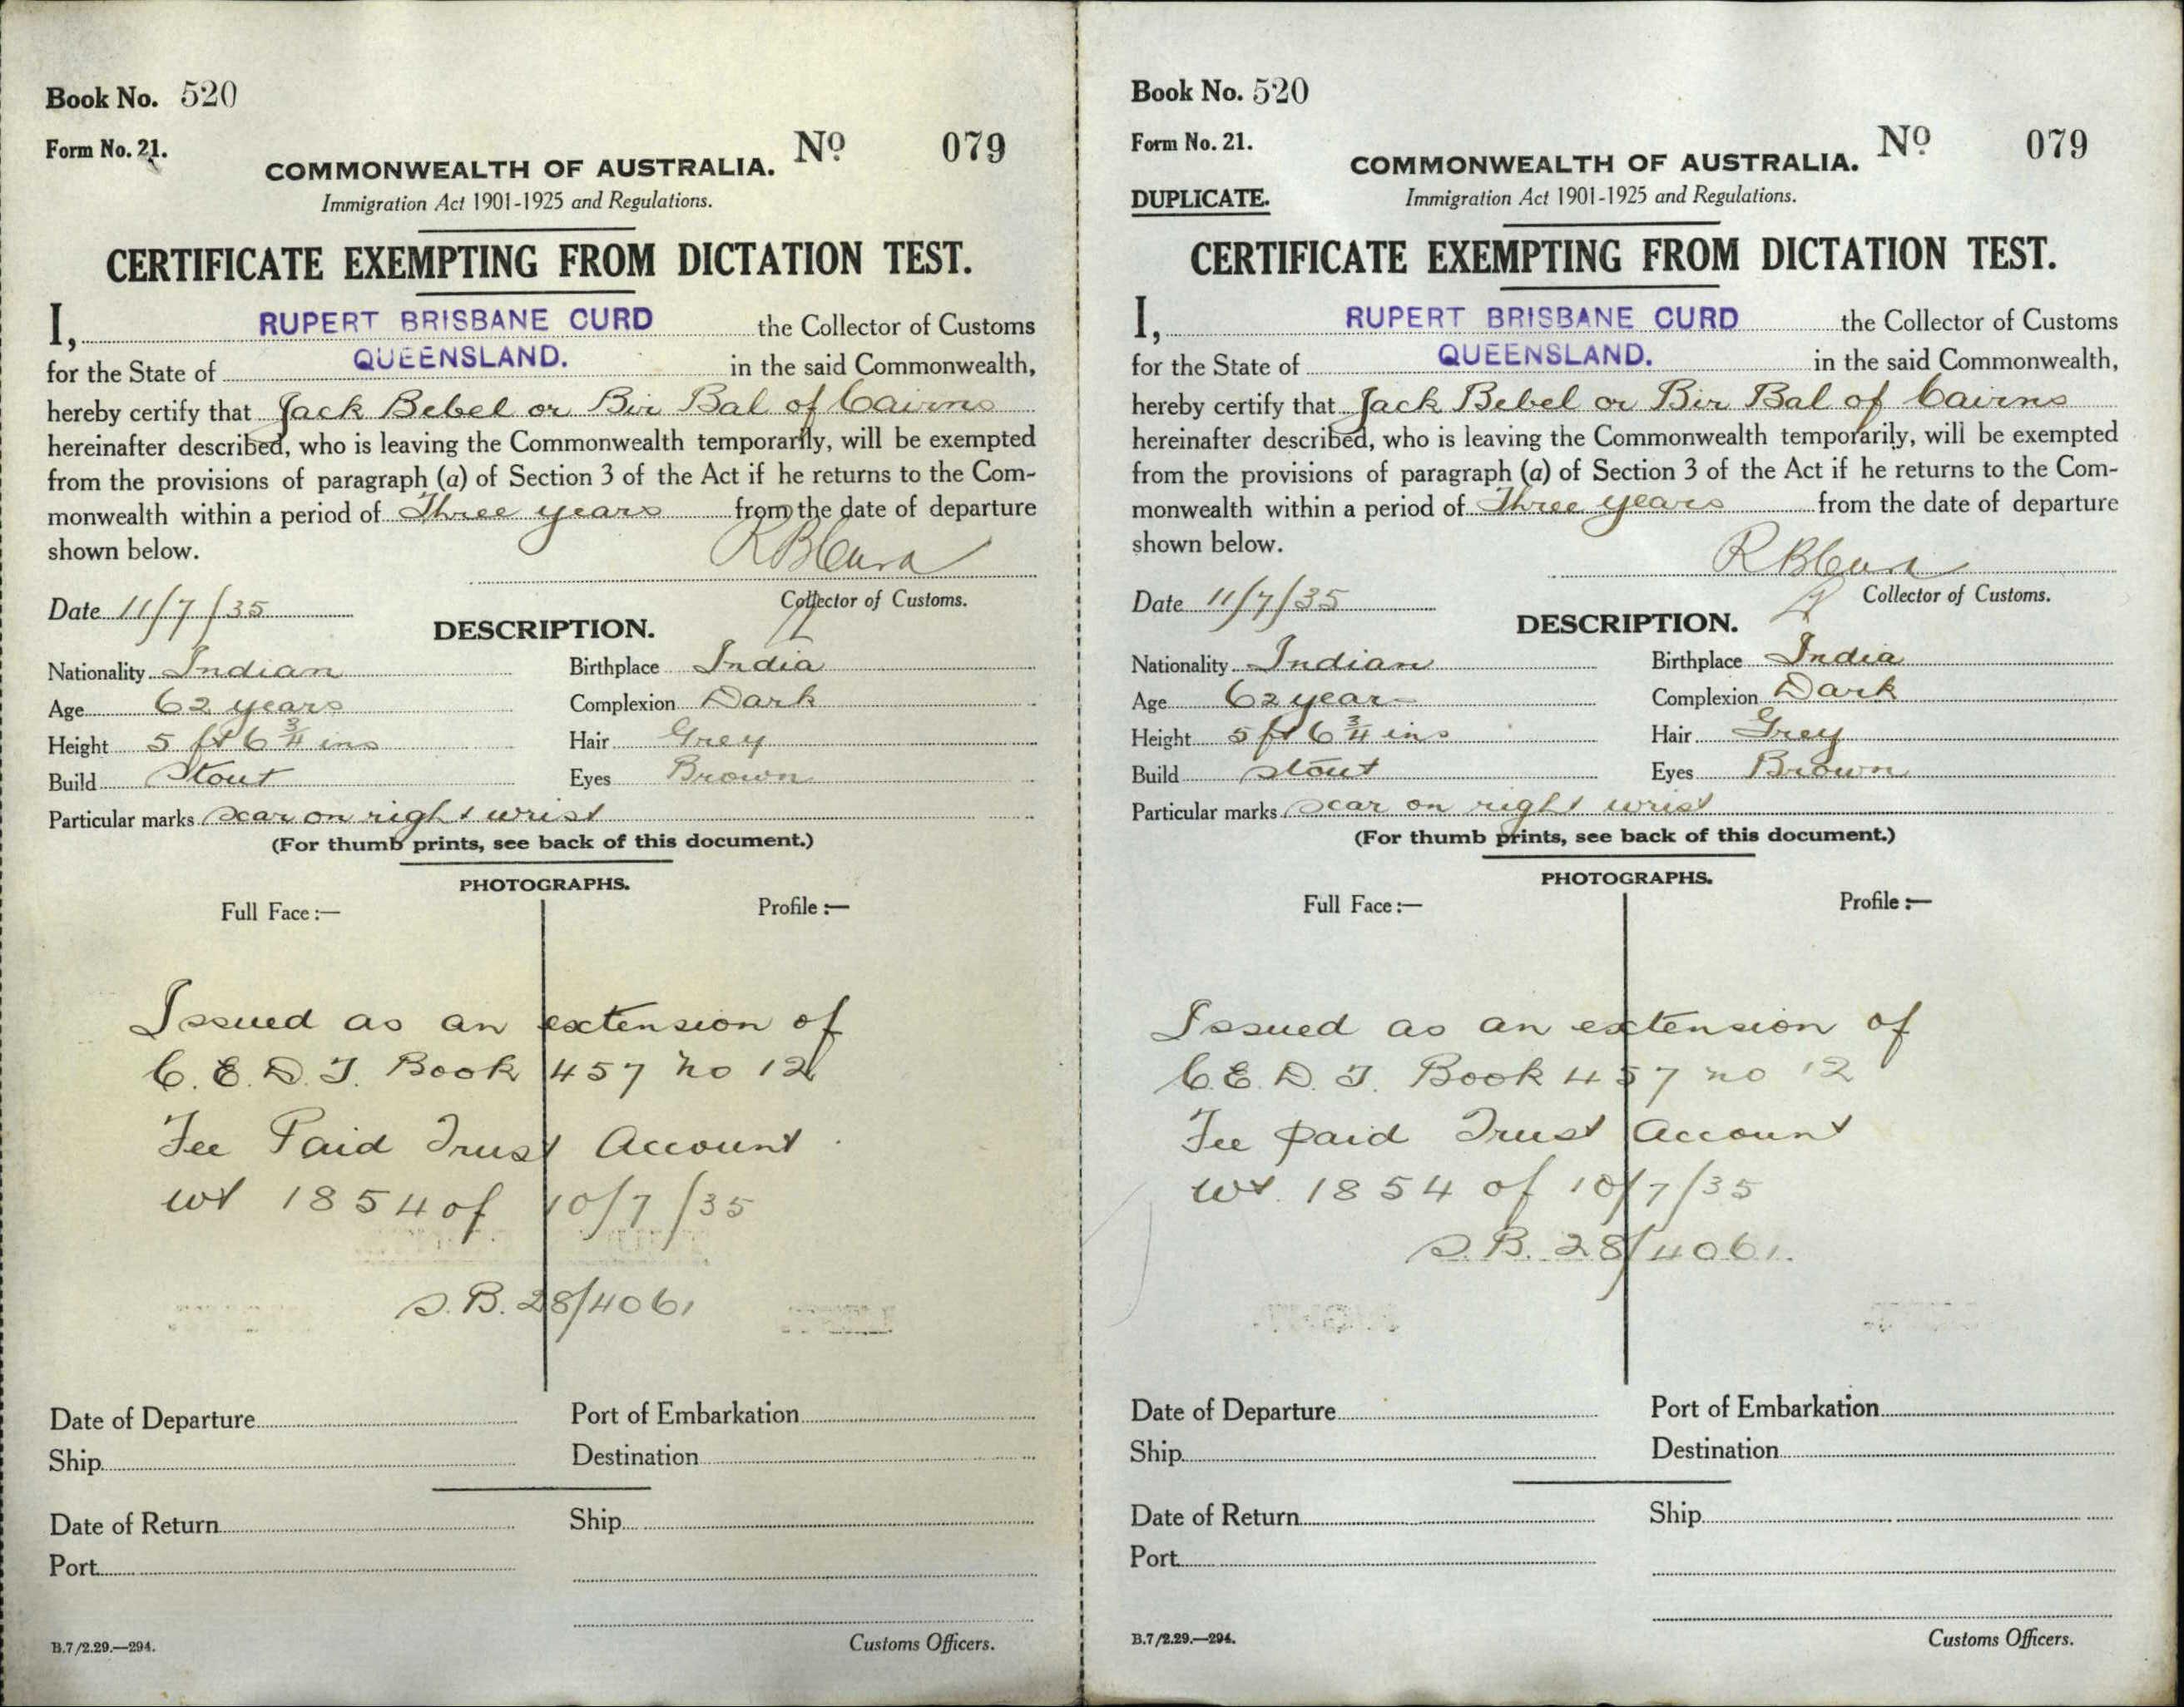 Book No. 520
Form No. 21.
COMMONWEALTH OF AUSTRALIA. Nº 079
Immigration Act 1901-1925 and Regulations.
CERTIFICATE EXEMPTING FROM DICTATION TEST.
I, RUPERT BRISBANE CURD the Collector of Customs
for the State of QUEENSLAND. in the said Commonwealth,
hereby certify that Jack Bebel or Bir Bal of Cairns
hereinafter described, who is leaving the Commonwealth temporarily, will be exempted
from the provisions of paragraph (a) of Section 3 of the Act if he returns to the Com-
monwealth within a period of Three years from the date of departure
shown below.
R B Curd
Date 11/7/35 Collector of Customs.
DESCRIPTION.
Nationality Indian Birthplace India
Age 62 years Complexion Dark
Height 5 ft 6 3/4 ins Hair Grey
Build Stout Eyes Brown
Particular marks scar on right wrist
(For thumb prints, see back of this document.)
PHOTOGRAPHS.
Full Face:— Profile:—
Issued as an extension of
C. E. D. T. Book 457 no 12
Fee Paid Trust Account
wt 1854 of 10/7/35
S.B. 28/4061
Date of Departure Port of Embarkation
Ship Destination
Date of Return Ship
Port
B.7/2.29.—294. Customs Officers.
Book No. 520
Form No. 21.
COMMONWEALTH OF AUSTRALIA. Nº 079
DUPLICATE. Immigration Act 1901-1925 and Regulations.
CERTIFICATE EXEMPTING FROM DICTATION TEST.
I, RUPERT BRISBANE CURD the Collector of Customs
for the State of QUEENSLAND. in the said Commonwealth,
hereby certify that Jack Bebel or Bir Bal of Cairns
hereinafter described, who is leaving the Commonwealth temporarily, will be exempted
from the provisions of paragraph (a) of Section 3 of the Act if he returns to the Com-
monwealth within a period of Three years from the date of departure
shown below.
R B Curd
Date 11/7/35 Collector of Customs.
DESCRIPTION.
Nationality Indian Birthplace India
Age 62 years Complexion Dark
Height 5 ft 6 3/4 ins Hair Grey
Build stout Eyes Brown
Particular marks scar on right wrist
(For thumb prints, see back of this document.)
PHOTOGRAPHS.
Full Face:— Profile:—
Issued as an extension of
C. E. D. T. Book 457 no 12
Fee paid Trust Account
wt. 1854 of 10/7/35
S.B. 28/4061.
Date of Departure Port of Embarkation
Ship Destination
Date of Return Ship
Port
B.7/2.29.—294. Customs Officers.